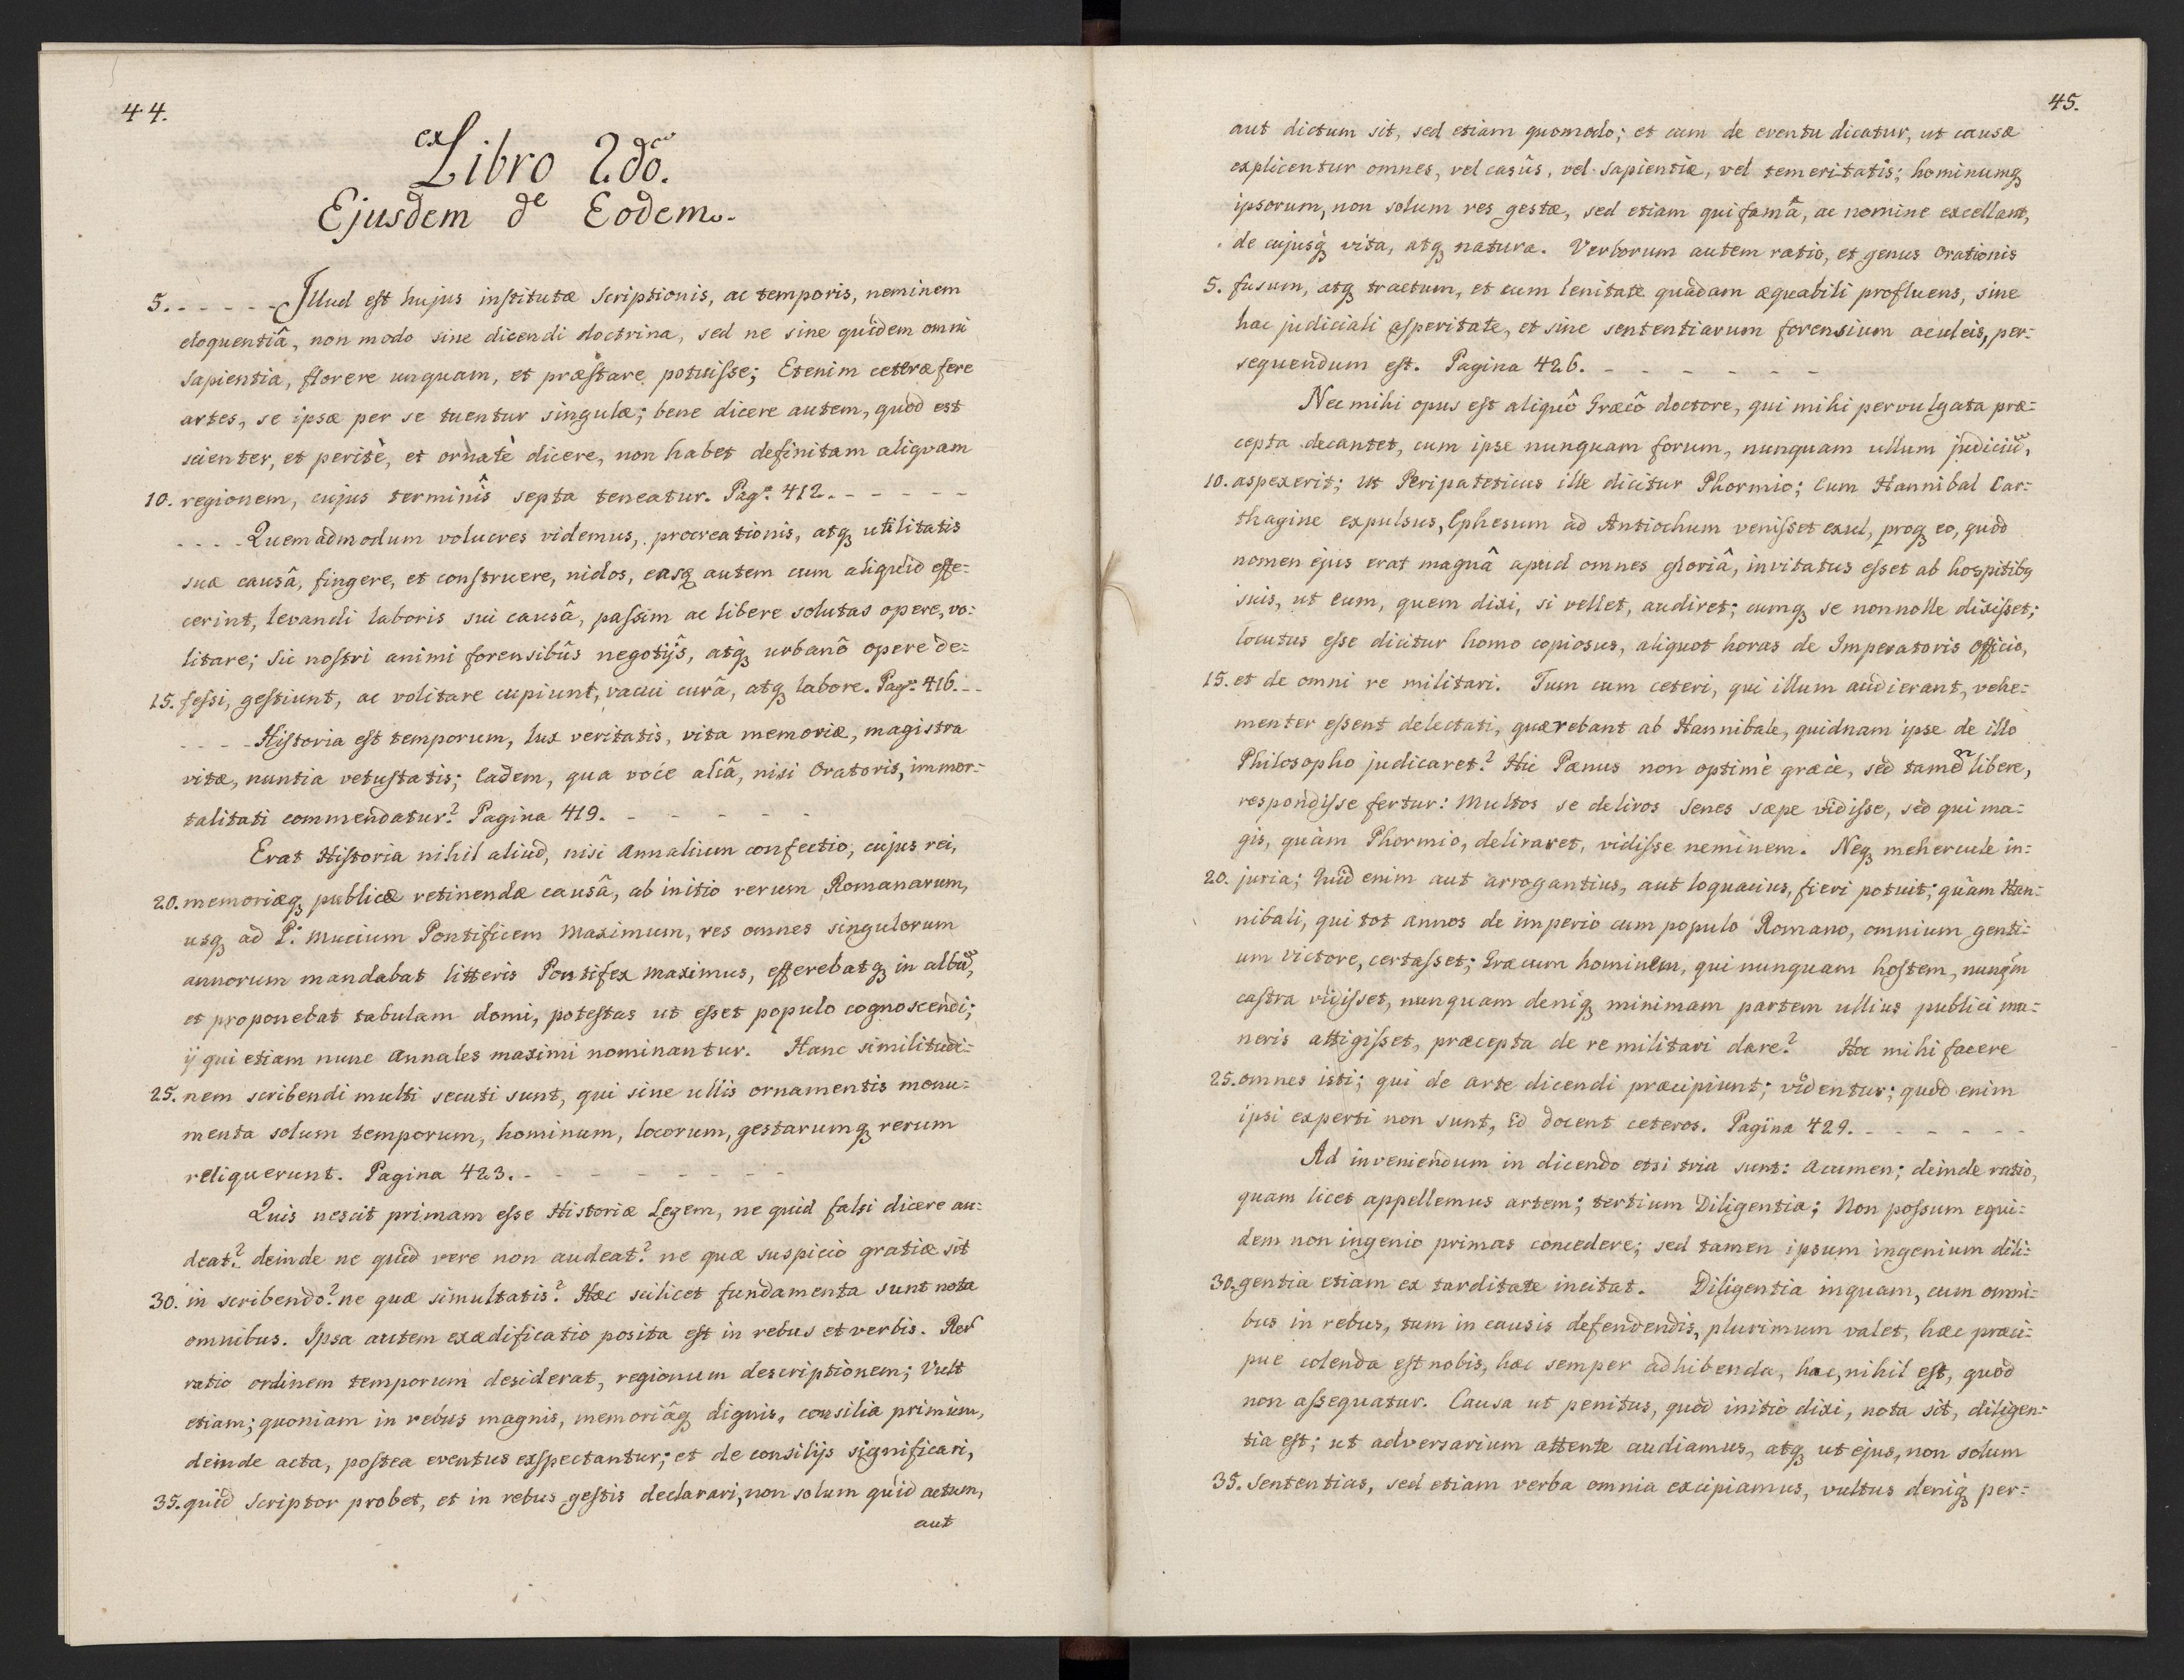 44.
ex Libro 2do.
Ejusdem de Eodem.
5. - - - - - Illud est hujus institutæ scriptionis, ac temporis, neminem
eloquentiâ, non modo sine dicendi doctrina, sed ne sine quidem omni
sapientia, florere unquam, et præstare potuisse; Etenim ceteræ fere
artes, se ipsæ per se tuentur singulæ; bene dicere autem, quod est
scienter, et peritè, et ornatè dicere, non habet definitam aliqvam
10. regionem, cujus terminîs septa teneatur. Pag.ª 412. - - - - -
- - - - Quemadmodum volucres videmus, procreationis, atq3 utilitatis
suæ causâ, fingere, et construere, nidos, easq3 autem cum aliquid effe=
cerint, levandi laboris sui causâ, passim ac libere solutas opere, vo=
litare; sic nostri animi forensibûs negotijs, atq3 urbanô opere de=
15. fessi, gestiunt, ac volitare cupiunt, vacui curâ, atq3 labore. Pag.ª 416. - -
- - - - Historia est temporum, lux veritatis, vita memoriæ, magistra
vitæ, nuntia vetustatis; Eadem, qua voce aliâ, nisi Oratoris, immor=
talitati commendatur? Pagina 419. - - - - -
Erat Historia nihil aliud, nisi Annalium confectio, cujus rei,
20. memoriæq3 publicæ retinendæ causâ, ab initio rerum Romanarum,
usq3 ad P. Mucium Pontificem Maximum, res omnes singulorum
annorum mandabat litteris Pontifex Maximus, efferebatq3 in albū,
et proponebat tabulam domi, potestas ut esset populo cognoscendi;
ij qui etiam nunc Annales maximi nominantur. Hanc similitudi=
25. nem scribendi multi secuti sunt, qui sine ullis ornamentis monu=
menta solum temporum, hominum, locorum, gestarumq3 rerum
reliquerunt. Pagina 423. - - - - - - - -
Quis nescit primam esse Historiæ Legem, ne quid falsi dicere au=
deat? deinde ne quid vere non audeat? ne quæ suspicio gratiæ sit
30. in scribendo? ne quæ simultatis? Hæc scilicet fundamenta sunt nota
omnibus. Ipsa autem exædificatio posita est in rebus et verbis. Rer̃
ratio ordinem temporum desiderat, regionum descriptionem; Vult
etiam; quoniam in rebus magnis, memoriâq3 dignis, consilia primùm,
deinde acta, postea eventus exspectantur; et de consilijs significari,
35. quid scriptor probet, et in rebus gestis declarari, non solum quid actum,
aut
45.
aut dictum sit, sed etiam quomodo; et cum de eventu dicatur, ut causæ
explicentur omnes, vel casûs, vel sapientiæ, vel temeritatis; hominumq3
ipsorum, non solum res gestæ, sed etiam qui famâ, ac nomine excellant,
de cujusq3 vita, atq3 natura. Verborum autem ratio, et genus Orationis
5. fusum, atq3 tractum, et cum lenitate quâdam æquabili profluens, sine
hac judiciali asperitate, et sine sententiarum forensium aculeis, per=
sequendum est. Pagina 426. - - - - - -
Nec mihi opus est aliquô Græcô doctore, qui mihi pervulgata præ=
cepta decantet, cum ipse nunquam forum, nunquam ullum judiciū,
10. aspexerit; Ut Peripateticus ille dicitur Phormio; Cum Hannibal Car=
thagine expulsus, Ephesum ad Antiochum venisset exul, proq3 eo, quod
nomen ejus erat magnâ apud omnes gloriâ, invitatus esset ab hospitibq3
suis, ut eum, quem dixi, si vellet, audiret; cumq3 se non nolle dixisset;
locutus esse dicitur homo copiosus, aliquot horas de Imperatoris Officio,
15. et de omni re militari. Tum cum ceteri, qui illum audierant, vehe=
menter essent delectati, quærebant ab Hannibale, quidnam ipse de illo
Philosopho judicaret? Hic Pœnus non optimè græcè, sed tamē libere,
respondisse fertur: Multos se deliros Senes sæpe vidisse, sed qui ma=
gis, quàm Phormio, deliraret, vidisse neminem. Neq3 mehercule in=
20. juria; Quid enim aut arrogantius, aut loquacius, fieri potuit; quàm Han=
nibali, qui tot annos de imperio cum populo Romano, omnium genti=
um Victore, certasset; Græcum hominem, qui nunquam hostem, nunq̃m
castra vidisset, nunquam deniq3 minimam partem ullius publici mu=
neris attigisset, præcepta de re militari dare? Hoc mihi facere
25. omnes isti; qui de Arte dicendi præcipiunt; videntur; quod enim
ipsi experti non sunt, id docent ceteros. Pagina 429. - - - - - -
Ad inveniendum in dicendo etsi tria sunt: Acumen; deinde ratio,
quam licet appellemus artem; tertium Diligentia; Non possum equi=
dem non ingenio primas concedere; sed tamen ipsum ingenium dili=
30. gentia etiam ex tarditate incitat. Diligentia inquam, cum omni=
bus in rebus, tum in causis defendendis, plurimum valet, hæc præci=
pue colenda est nobis, hæc semper adhibenda, hac, nihil est, quod
non assequatur. Causa ut penitus, quod initio dixi, nota sit, diligen=
tia est; ut adversarium attente audiamus, atq3 ut ejus, non solum
35. Sententias, sed etiam verba omnia excipiamus, vultus deniq3 per=